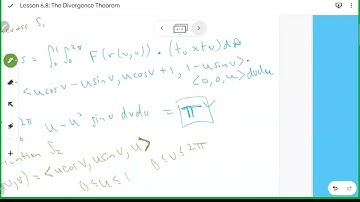 Lesson 6.8: The Divergence Theorem
across S₁
S = ∫₀¹ ∫₀^2π F(r(u,v)) · (tᵤ x tᵥ) dA
<ucosv - usinv, ucosv + 1, 1 - usinv> ·
<0, 0, u> dvdu
2π
0 u - u² sinv dvdu = π
S₂
(u,v) = <ucosv, usinv, u>
0 ≤ u ≤ 1 0 ≤ v ≤ 2π